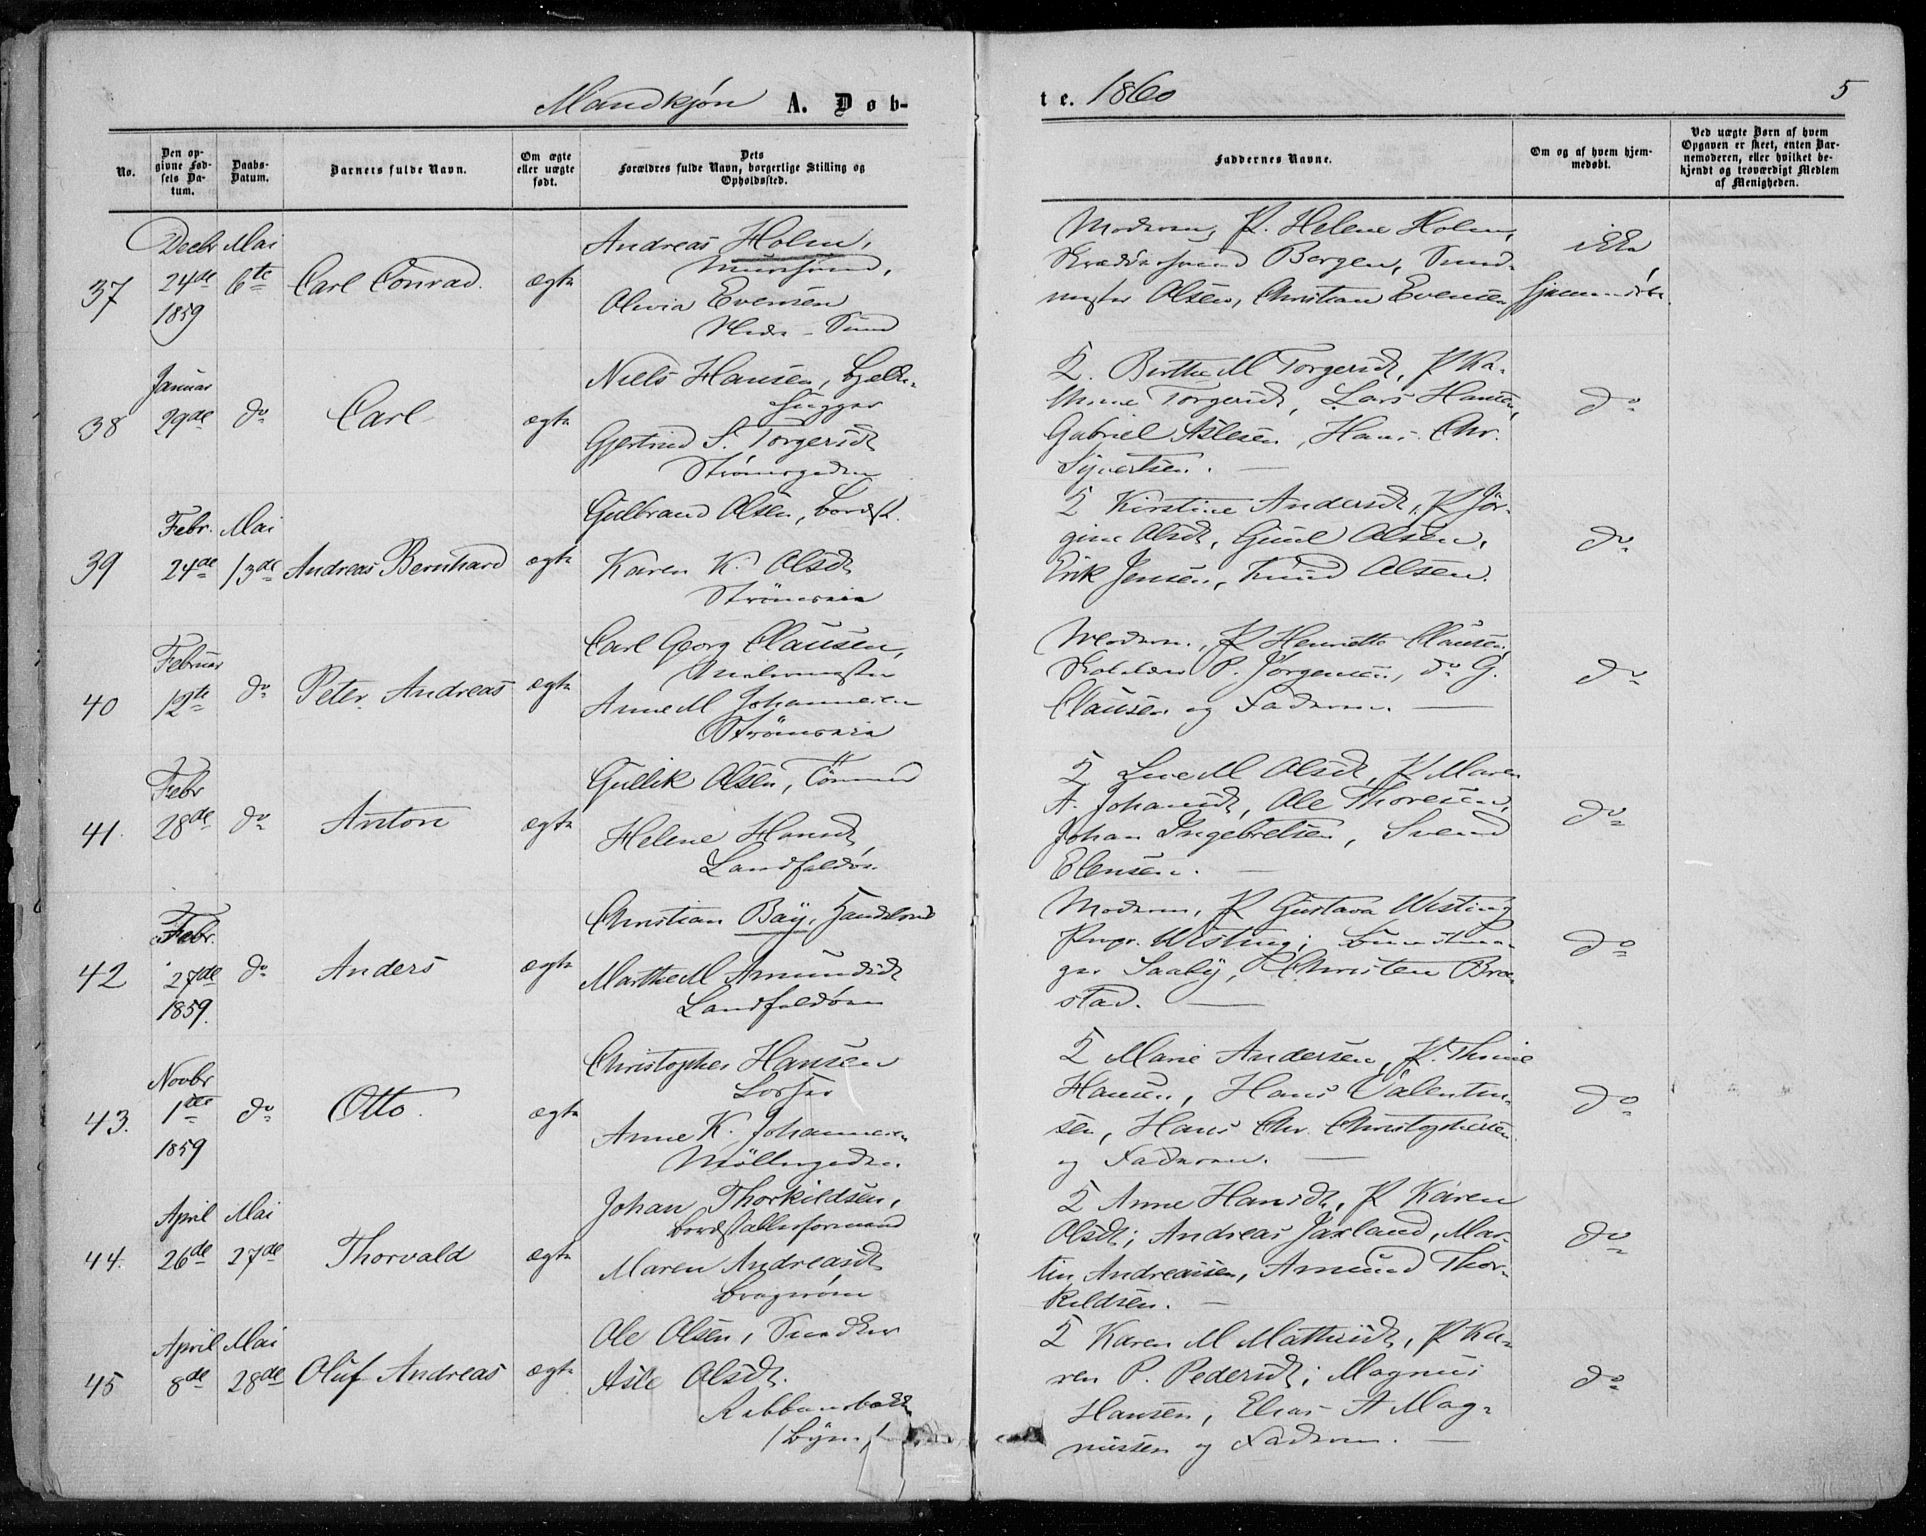 Mandkjøn A. Døb-
te. 1860 5
No.
Den op-
givne Fød-
sels Da-
tum.
Daabs-
Datum.
Barnets fulde Navn.
Om ægte
eller uægte
født.
Dets
Forældres fulde Navn, borgerlige Stilling og
Opholdssted.
Faddernes Navne.
Om og af hvem hjem-
medøbt.
Ved uægte Børn af hvem
Opgaven er skeet, enten Bar-
nemoderen, eller hvilket be-
kjendt og troværdigt Medlem
af Menigheden.
37
Decbr
24de
1859
Mai
6te
Carl Conrad.
ægte
Andreas Holm,
Muursvend,
Olivia Evensen
Sund
Moderen, P. Helene Holm,
Skræddersvend Bergen,
Olsen, Christian Evensen
ikke
hjemmedøbt.
38
Januar
29de
do
Carl
ægte
Niels Hansen, Bjelke-
hugger
Gjertrud S. Torgersdt
Strømsgaden
K. Birthe M Torgersdt, P Ka-
thrine Torgersdt, Lars Hansen,
Gabriel Aslesen, Hans Chr.
Syvertsen.
do
39
Febr.
24de
Mai
13de
Andreas Bernhard
ægte
Gulbrand Olsen, bordst
Karen K. Olsdt
Strømsøen
K Kirstine Andersdt, P Jør-
gine Olsdt, Gunl Olsen,
Erik Jensen, Knud Olsen.
do
40
Februar
12te
do
Peter Andreas
ægte
Carl Georg Clausen,
Malermester
Anne M Johannesen
Strømsøen
Moderen, P Henriette Clausen,
P. Jørgensen, do G.
Clausen og Faderen.
do
41.
Febr
28de
do
Anton
ægte
Gullik Olsen, Tømmerm
Helene Hansdt,
Landfaldøen
K Lise M Olsdt, P Maren
A. Johansdt, Ole Thoresen,
Johan Ingebretsen, Svend
Elensen.
do
42
Febr.
27de
1859.
do
Anders
ægte
Christian Bay, Handelsmd
Marthe M Amundsdt
Landfaldøen
Moderen, P Gustava Westing
Westing,
ger Saaby, Christen Bra-
stad.
do
43.
Novbr
1ste
1859
do
Otto.
ægte
Christopher Hansen
Losser
Anne K. Johannesen
Møllergaden.
K Marie Andersen, P. Thrine
Hansen, Hans Valentin-
sen, Hans Chr. Christophersen
og Faderen.
do
44.
April
26de
Mai
27de
Thorvald
ægte
Johan Thorkildsen,
bordstablerformand
Maren Andreasdt
Bragernæs
K Anne Hansdt, P Karen
Olsdt, Andreas Jarland, Mar-
tin Andreassen, Amund Thor-
kildsen.
do
45
April
8de
Mai
28de
Oluf Andreas
ægte
Ole Olsen, Snedker
Asle Olsdt.
Rabbensbakk
/ Byen /
K Karen M Mathisdt, P Ka-
ren P. Pedersdt, Magnus
Hansen, Elias A Mag-
nussen og Faderen.
do